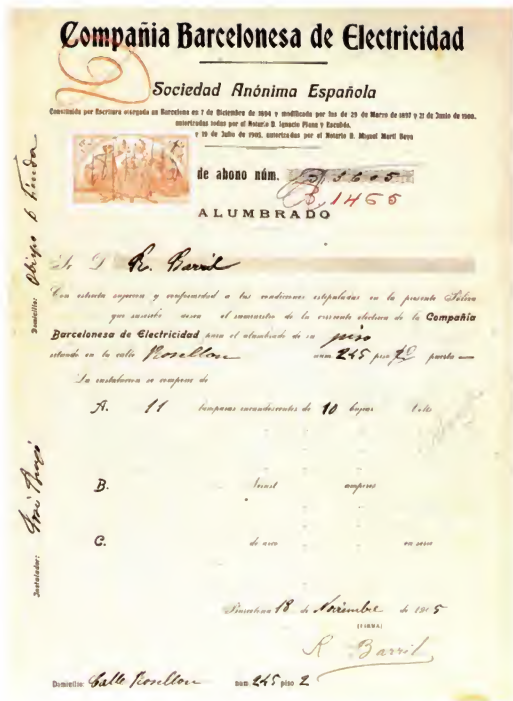 Compañia Barcelonesa de Electricidad
Sociedad Anónima Española
Constituida por Escritura otorgada en Barcelona en 7 de Diciembre de 1894 y modificada por las de 29 de Marzo de 1897 y 21 de Junio de 1900,
autorizadas todas por el Notario D. Ignacio Plana y Escubós,
y 19 de Julio de 1902, autorizadas por el Notario D. Miguel Martí Beya
de abono núm.
B, 1465
ALUMBRADO
Sr. D. R. Barril
Con estricta sujeción y conformidad a las condiciones estipuladas en la presente Póliza
que suscribe desea el suministro de la corriente eléctrica de la Compañía
Barcelonesa de Electricidad para el alumbrado de su piso
situado en la calle Rosellon núm. 245 piso 2º puerta —
La instalación se compone de
A. 11 lámparas incandescentes de 10 bujías Volts
B. amperes
C. de arco en serie
Barcelona 18 de Noviembre de 1915
(FIRMA)
R Barril
Domicilio: Calle Rosellon núm 245 piso 2
Domicilio: Obispo
Instalador: José